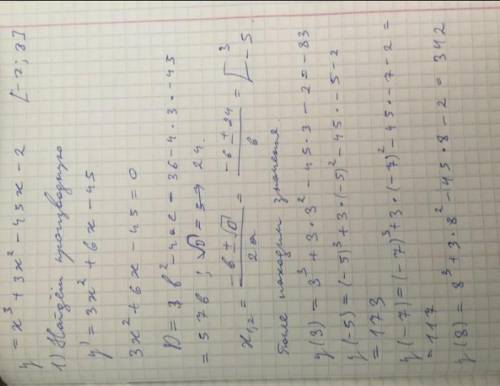 y = x³ + 3x² - 45x - 2 [-7; 8]
1) Найдём производную
y' = 3x² + 6x - 45
3x² + 6x - 45 = 0
D = b² - 4ac = 36 - 4 · 3 · -45
= 576; √D = 24.
x₁,₂ = (-b ± √D) / 2a = (-6 ± 24) / 6 = [3 -5.
находим значения
y(3) = 3³ + 3 · 3² - 45 · 3 - 2 = -83
y(-5) = (-5)³ + 3 · (-5)² - 45 · -5 - 2
= 173
y(-7) = (-7)³ + 3 · (-7)² - 45 · -7 - 2 =
= 117
y(8) = 8³ + 3 · 8² - 45 · 8 - 2 = 342